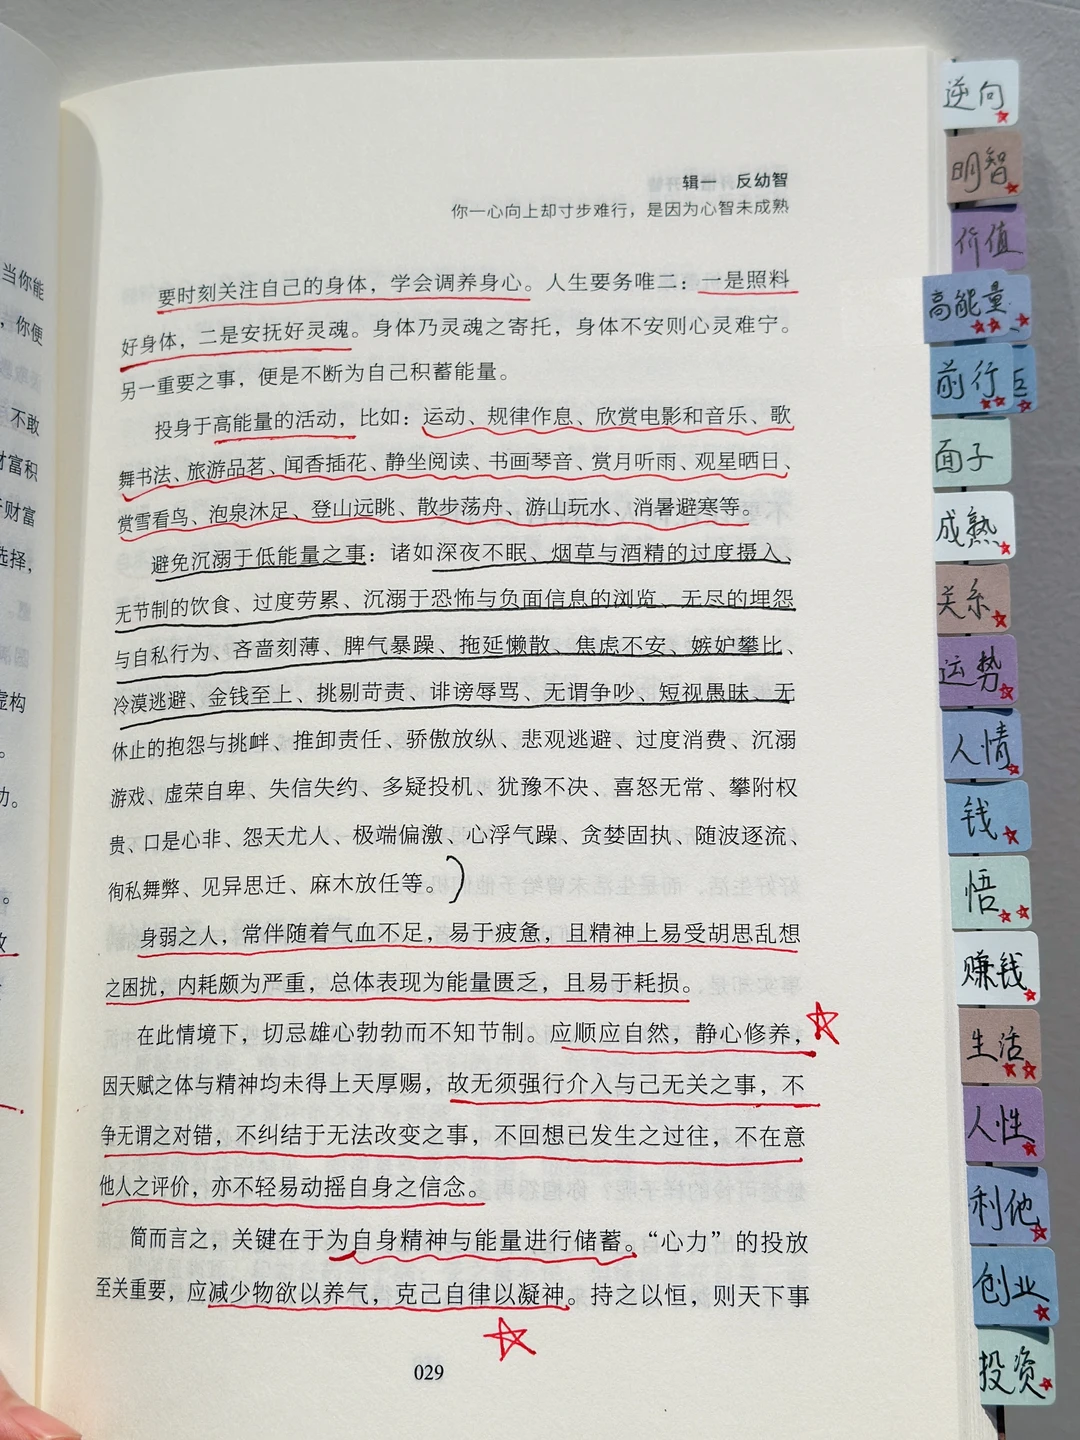 当你能
，你便
不敢
财富积
财富
选择，
虚构
辑一　反幼智
你一心向上却寸步难行，是因为心智未成熟
要时刻关注自己的身体，学会调养身心。人生要务唯二：一是照料
好身体，二是安抚好灵魂。身体乃灵魂之寄托，身体不安则心灵难宁。
另一重要之事，便是不断为自己积蓄能量。
投身于高能量的活动，比如：运动、规律作息、欣赏电影和音乐、歌
舞书法、旅游品茗、闻香插花、静坐阅读、书画琴音、赏月听雨、观星晒日、
赏雪看鸟、泡泉沐足、登山远眺、散步荡舟、游山玩水、消暑避寒等。
避免沉溺于低能量之事：诸如深夜不眠、烟草与酒精的过度摄入、
无节制的饮食、过度劳累、沉溺于恐怖与负面信息的浏览、无尽的埋怨
与自私行为、吝啬刻薄、脾气暴躁、拖延懒散、焦虑不安、嫉妒攀比、
冷漠逃避、金钱至上、挑剔苛责、诽谤辱骂、无谓争吵、短视愚昧、无
休止的抱怨与挑衅、推卸责任、骄傲放纵、悲观逃避、过度消费、沉溺
游戏、虚荣自卑、失信失约、多疑投机、犹豫不决、喜怒无常、攀附权
贵、口是心非、怨天尤人、极端偏激、心浮气躁、贪婪固执、随波逐流、
徇私舞弊、见异思迁、麻木放任等。
身弱之人，常伴随着气血不足，易于疲惫，且精神上易受胡思乱想
之困扰，内耗颇为严重，总体表现为能量匮乏，且易于耗损。
在此情境下，切忌雄心勃勃而不知节制。应顺应自然，静心修养，
因天赋之体与精神均未得上天厚赐，故无须强行介入与己无关之事，不
争无谓之对错，不纠结于无法改变之事，不回想已发生之过往，不在意
他人之评价，亦不轻易动摇自身之信念。
简而言之，关键在于为自身精神与能量进行储蓄。“心力”的投放
至关重要，应减少物欲以养气，克己自律以凝神。持之以恒，则天下事
029
逆向
明智
价值
高能量
前行
面子
成熟
关系
运势
人情
钱
悟
赚钱
生活
人性
利他
创业
投资